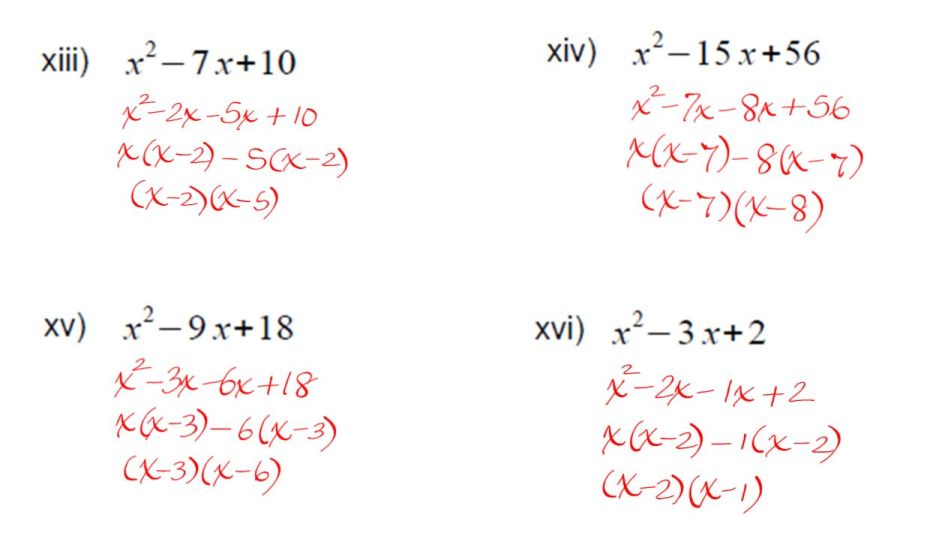 xiii) x² – 7x+10
x²–2x–5x+10
x(x–2)–5(x–2)
(x–2)(x–5)
xiv) x² – 15x+56
x²–7x–8x+56
x(x–7)–8(x–7)
(x–7)(x–8)
xv) x² – 9x+18
x²–3x–6x+18
x(x–3)–6(x–3)
(x–3)(x–6)
xvi) x² – 3x+2
x²–2x–1x+2
x(x–2)–1(x–2)
(x–2)(x–1)